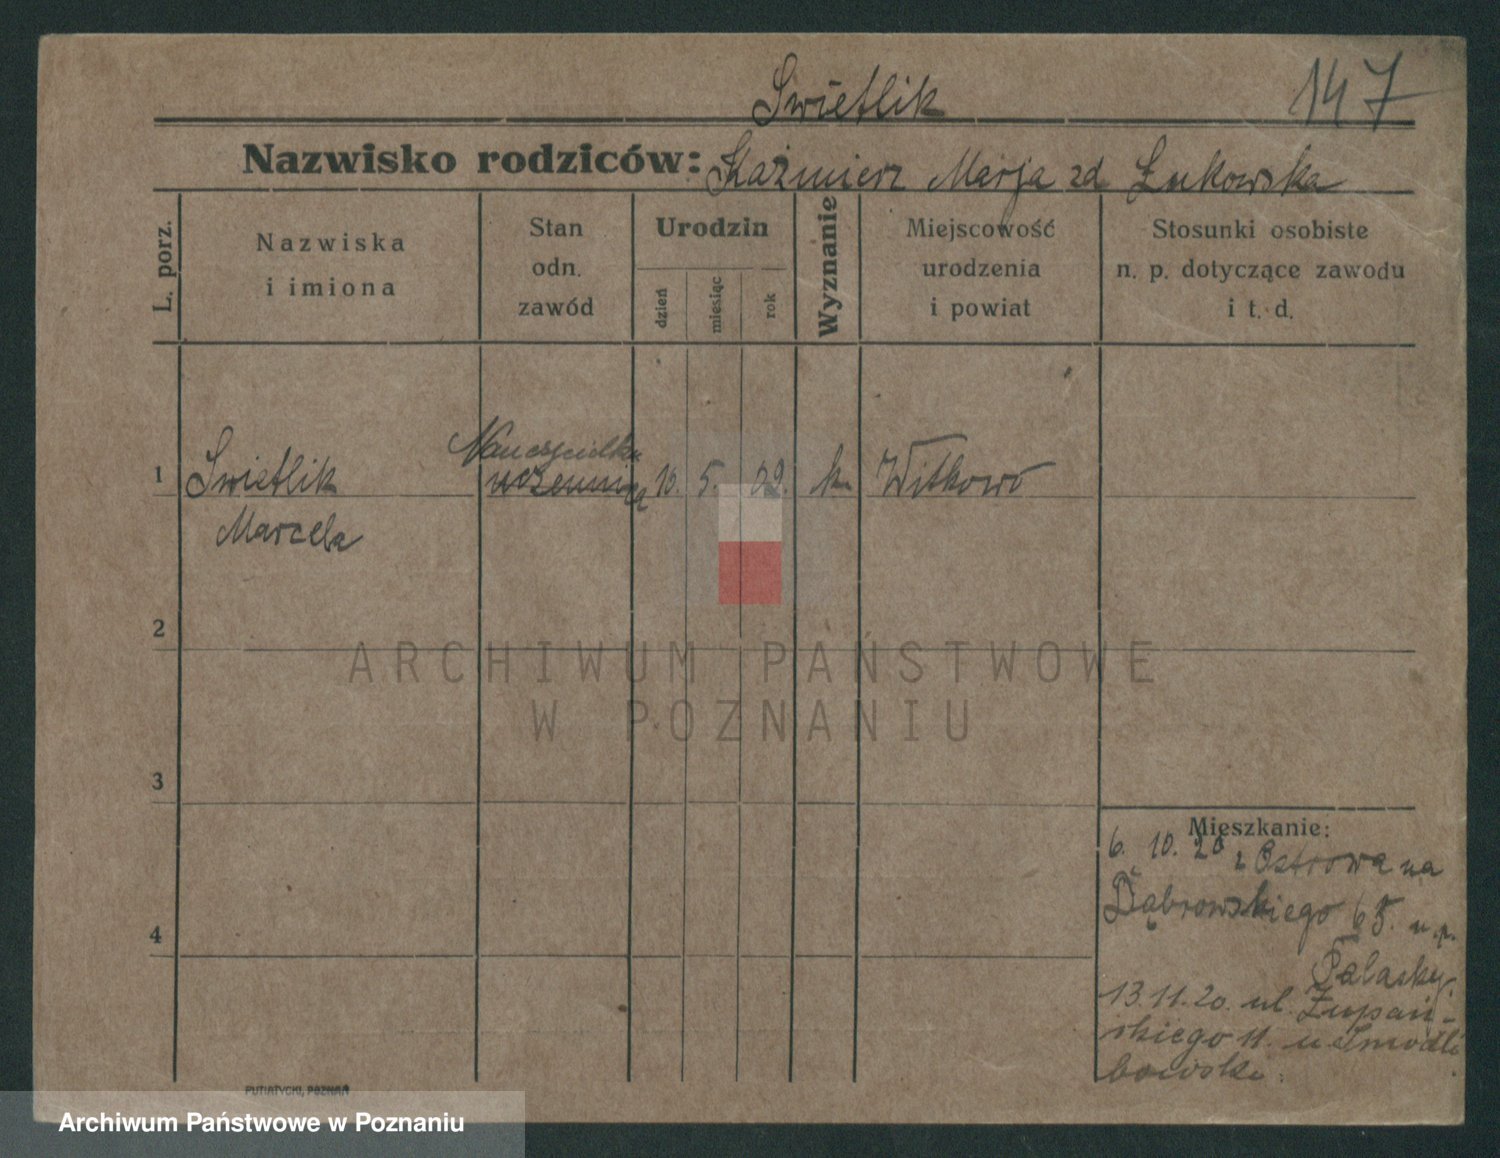 Swietlik 147
Nazwisko rodziców: Kaźmierz Marja zd Łukowska
L. porz.
Nazwiska
i imiona
Stan
odn.
zawód
Urodzin
dzień
miesiąc
rok
Wyznanie
Miejscowość
urodzenia
i powiat
Stosunki osobiste
n. p. dotyczące zawodu
i t. d.
Nauczycielka
1 Swietlik uczennica 10. 5. 02. k. Witkowo
Marcela
2
3
4
Mieszkanie:
6. 10. 20 z Ostrowa na
Dąbrowskiego 65. u p.
13.11.20. ul. Żupań-
skiego 11. u
PUTIATYCKI, POZNAŃ
ARCHIWUM PAŃSTWOWE
W POZNANIU
Archiwum Państwowe w Poznaniu